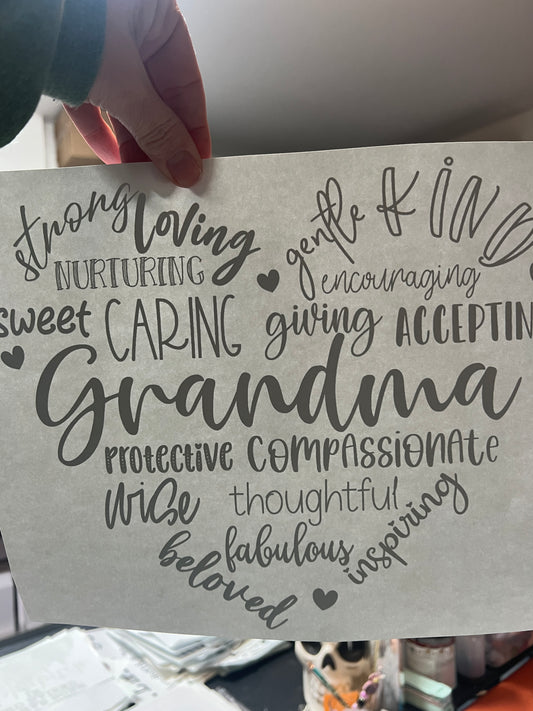 strong loving gentle KIND
NURTURING encouraging
sweet CARING giving ACCEPTIN
Grandma
PROTECTIVE COMPASSIONATE
WISE thoughtful
fabulous inspiring
beloved